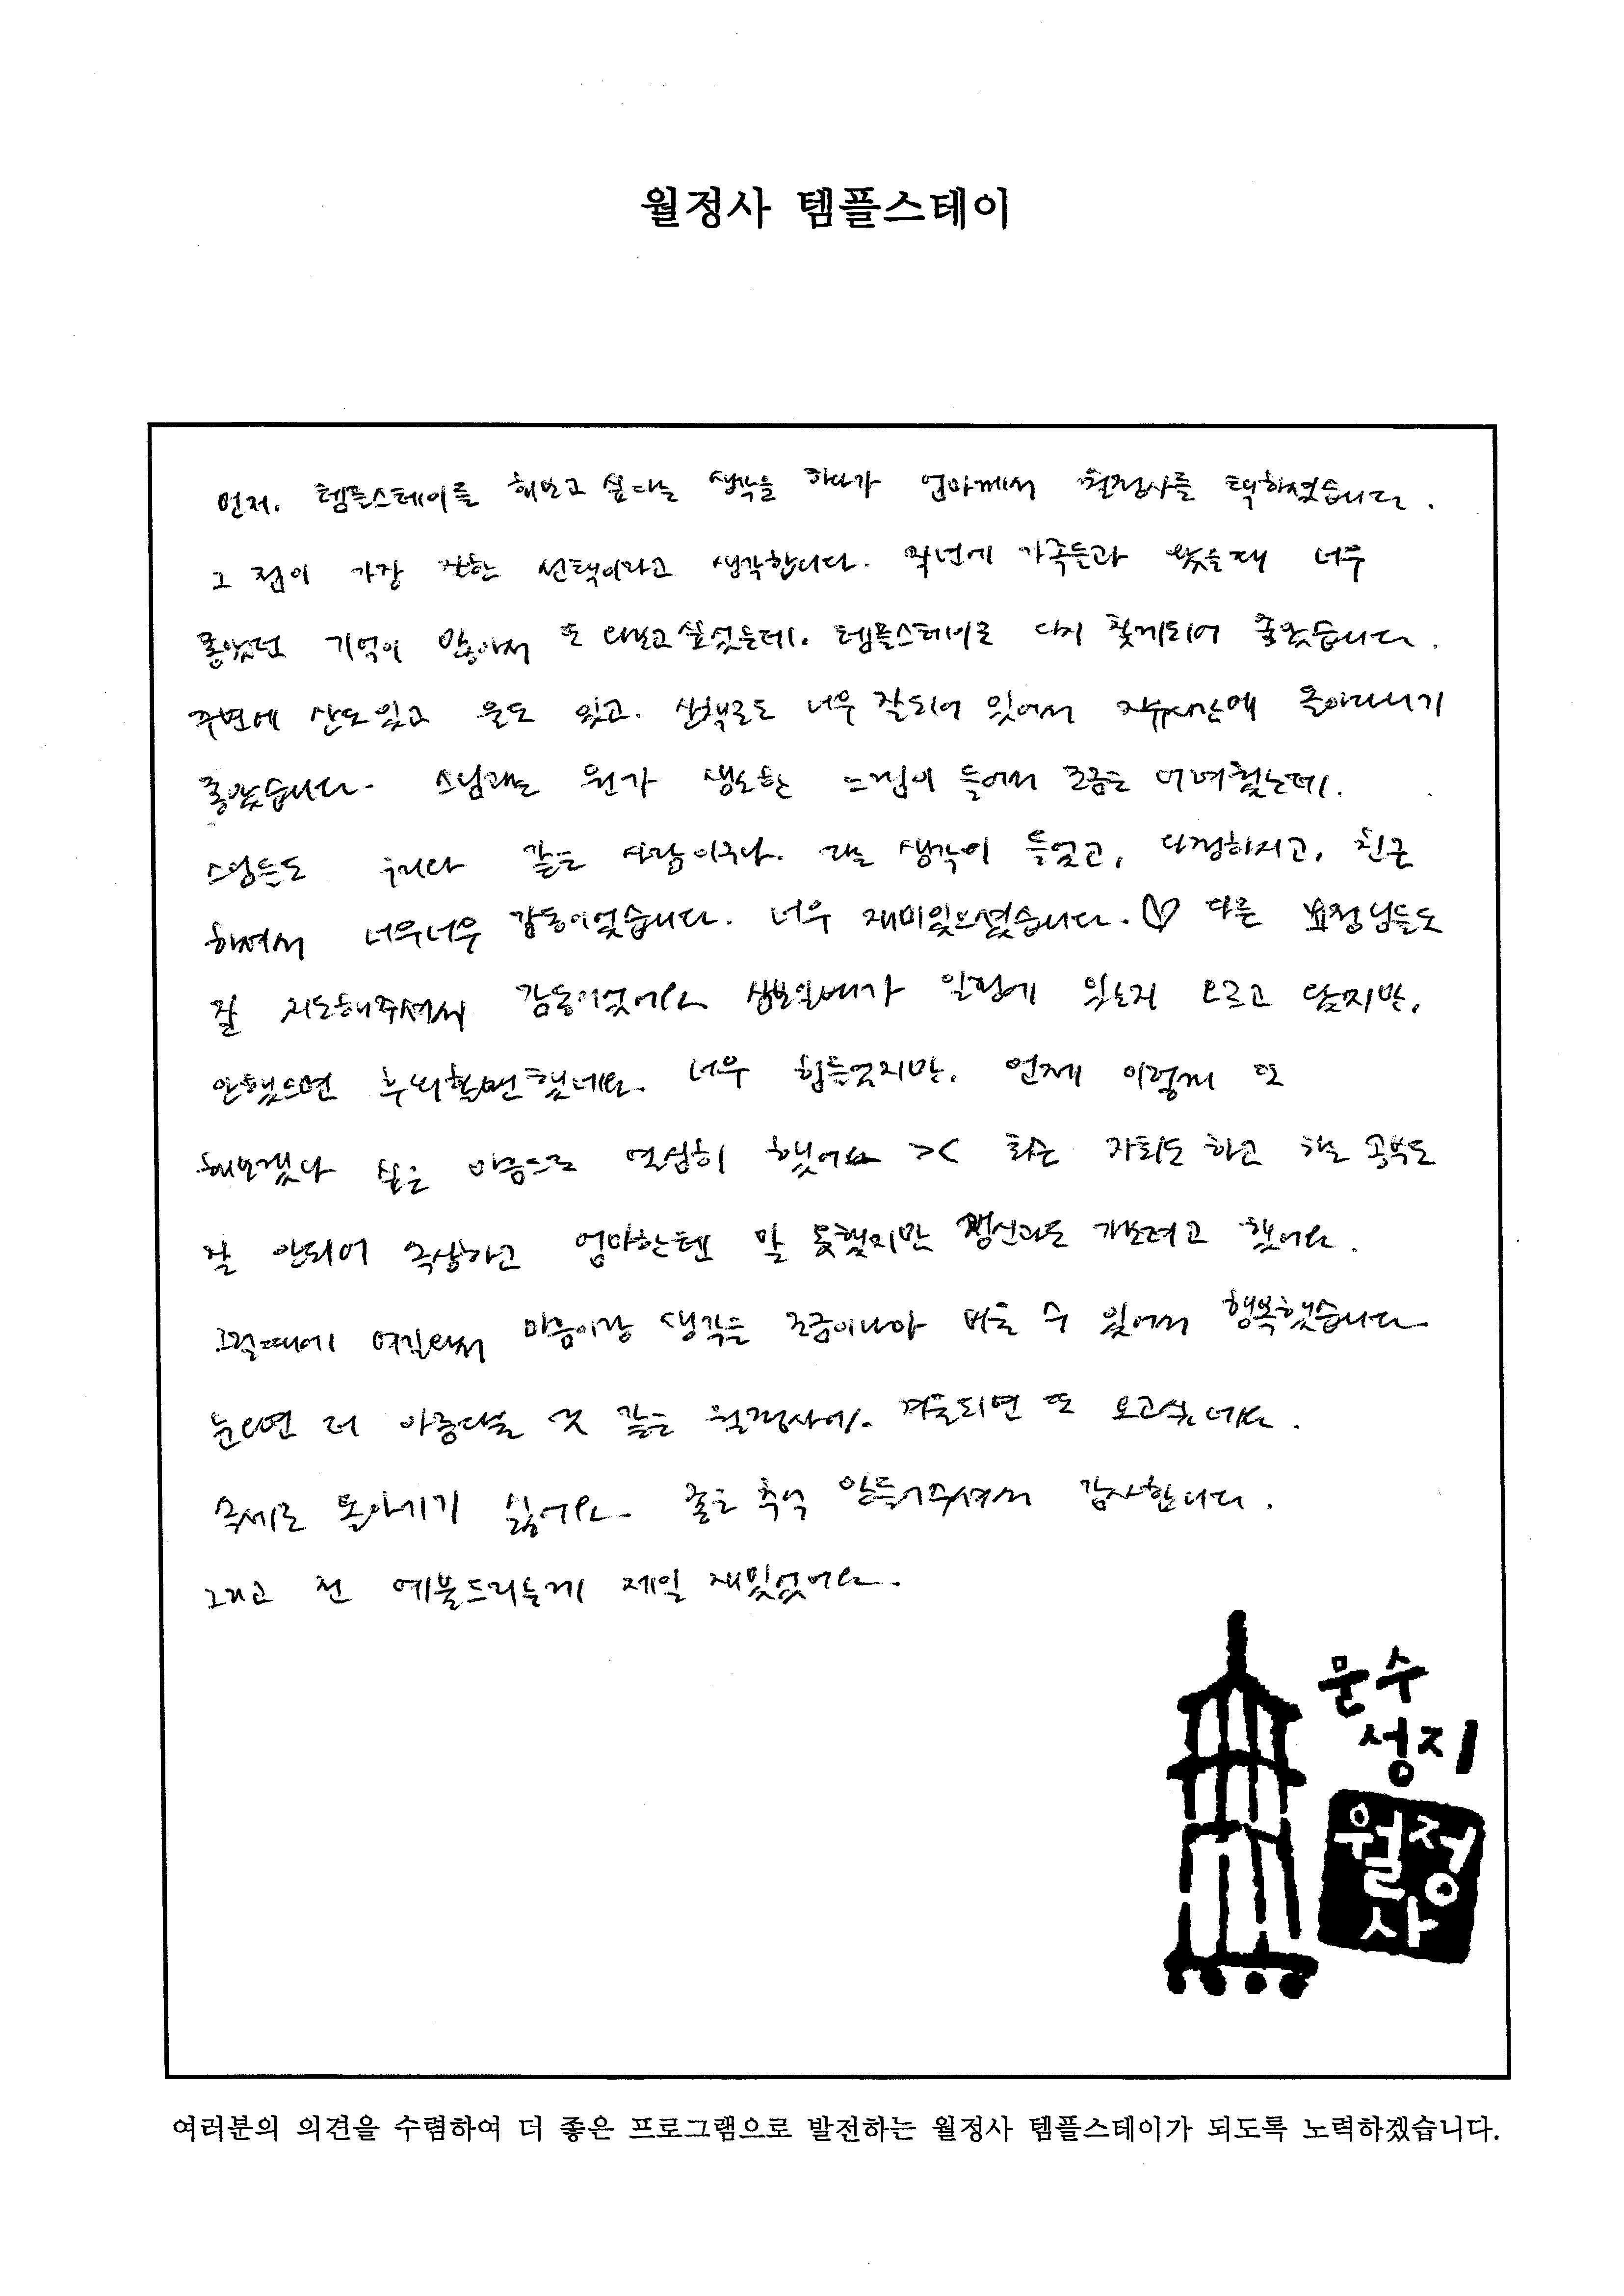 월정사 템플스테이
먼저. 템플스테이를 해보고 싶다는 생각을 하다가 엄마께서 월정사를 택하셨습니다.
그 점이 가장 잘한 선택이라고 생각합니다. 작년에 가족들과 왔을때 너무
좋았던 기억이 많아서 또 와보고싶었는데. 템플스테이로 다시 찾게되어 좋았습니다.
주변에 산도있고 물도 있고. 산책로도 너무 잘되어 있어서 자유시간에 돌아다니기
좋았습니다. 스님과는 뭔가 생소한 느낌이 들어서 조금은 어려웠는데.
스님들도 우리와 같은 사람이구나. 라는 생각이 들었고, 다정하시고, 친근
하셔서 너무너무 감동이었습니다. 너무 재미있으셨습니다.♡ 다른 팀장님들도
잘 지도해주셔서 감동이었어요 삼보일배가 일정에 있는지 모르고 왔지만,
안했으면 후회할뻔했네요. 너무 힘들었지만, 언제 이렇게 또
해보겠나 싶은 마음으로 열심히 했어요 >< 회사는 자퇴도 하고 하는 공부도
잘 안되어 속상하고 엄마한텐 말 못했지만 정신과도 가보려고 했어요.
그럴때에 여길와서 마음이랑 생각을 조금이나마 비울 수 있어서 행복했습니다
눈오면 더 아름다울 것 같은 월정사에. 겨울되면 또 오고싶네요.
속세로 돌아가기 싫어요. 좋은 추억 만들어주셔서 감사합니다.
그리고 전 예불드리는게 제일 재밌었어요.
문수
성지
월정
사
여러분의 의견을 수렴하여 더 좋은 프로그램으로 발전하는 월정사 템플스테이가 되도록 노력하겠습니다.